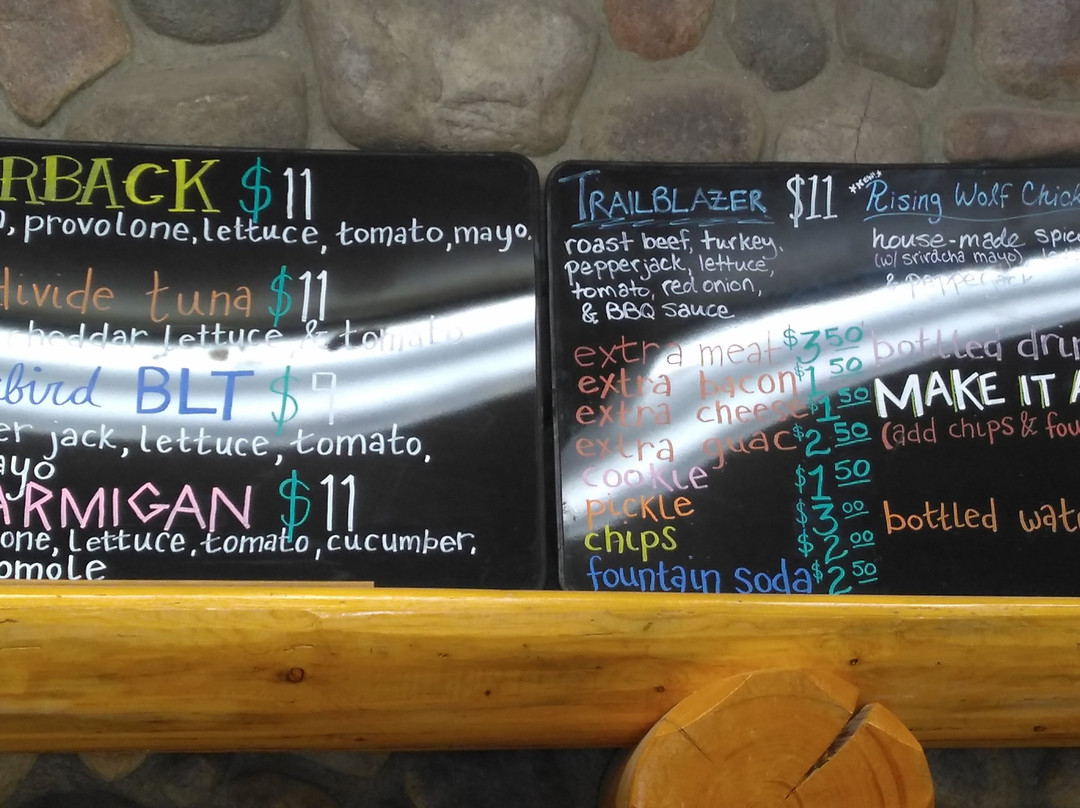 RBACK $11
, provolone, lettuce, tomato, mayo.
divide tuna $11
cheddar lettuce & tomato
bird BLT $9
er jack, lettuce, tomato,
ayo
ARMIGAN $11
one, lettuce, tomato, cucumber,
omole
TRAILBLAZER $11
roast beef, turkey,
pepperjack, lettuce,
tomato, red onion,
& BBQ sauce
extra meat $3 50
extra bacon $1 50
extra cheese $1 50
extra guac $2 50
cookie $1 50
pickle $3 00
chips $2 00
fountain soda $2 50
*NEW!* Rising Wolf Chick
house-made spic
(w/ sriracha mayo)
& pepperjack
bottled drin
MAKE IT A
(add chips & fou
bottled wat